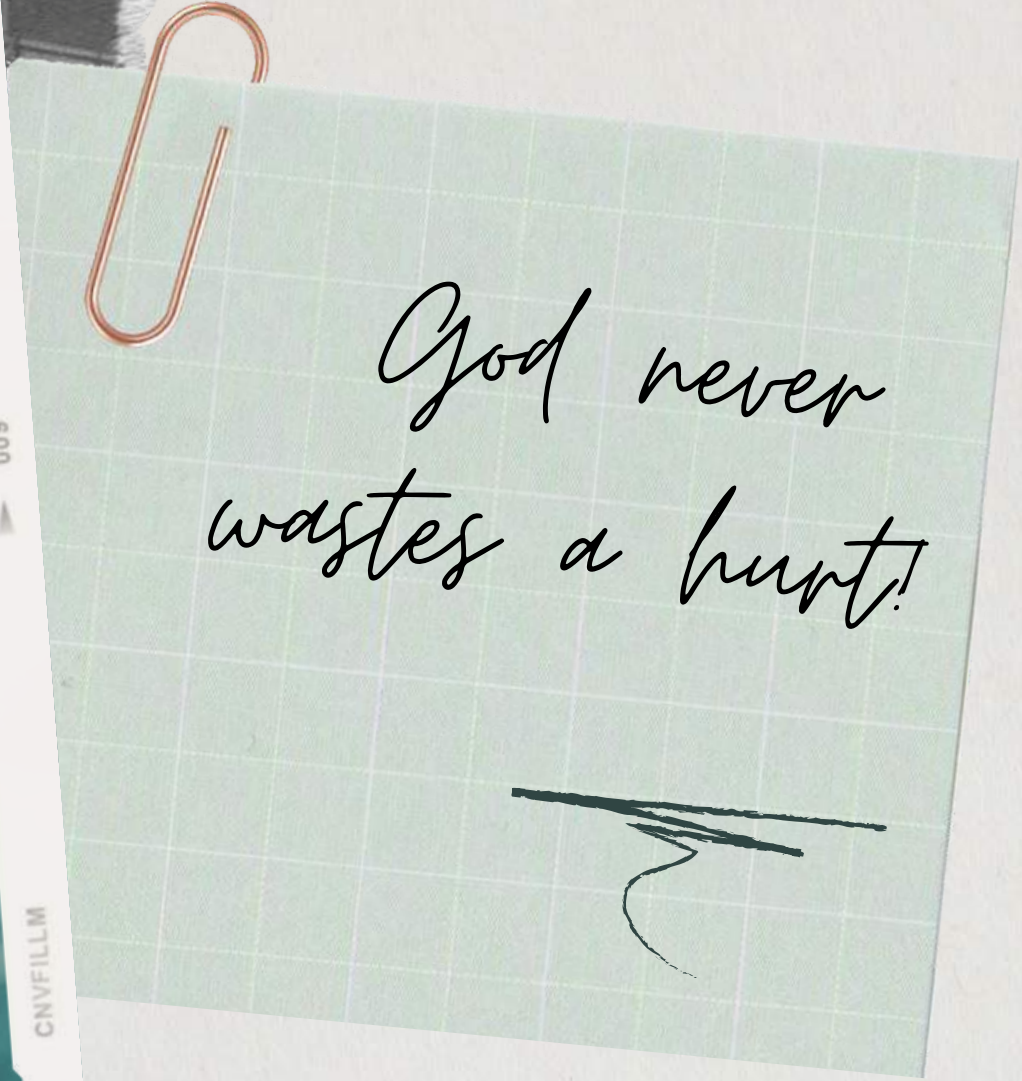 God never
wastes a hurt!
CNVFILLM